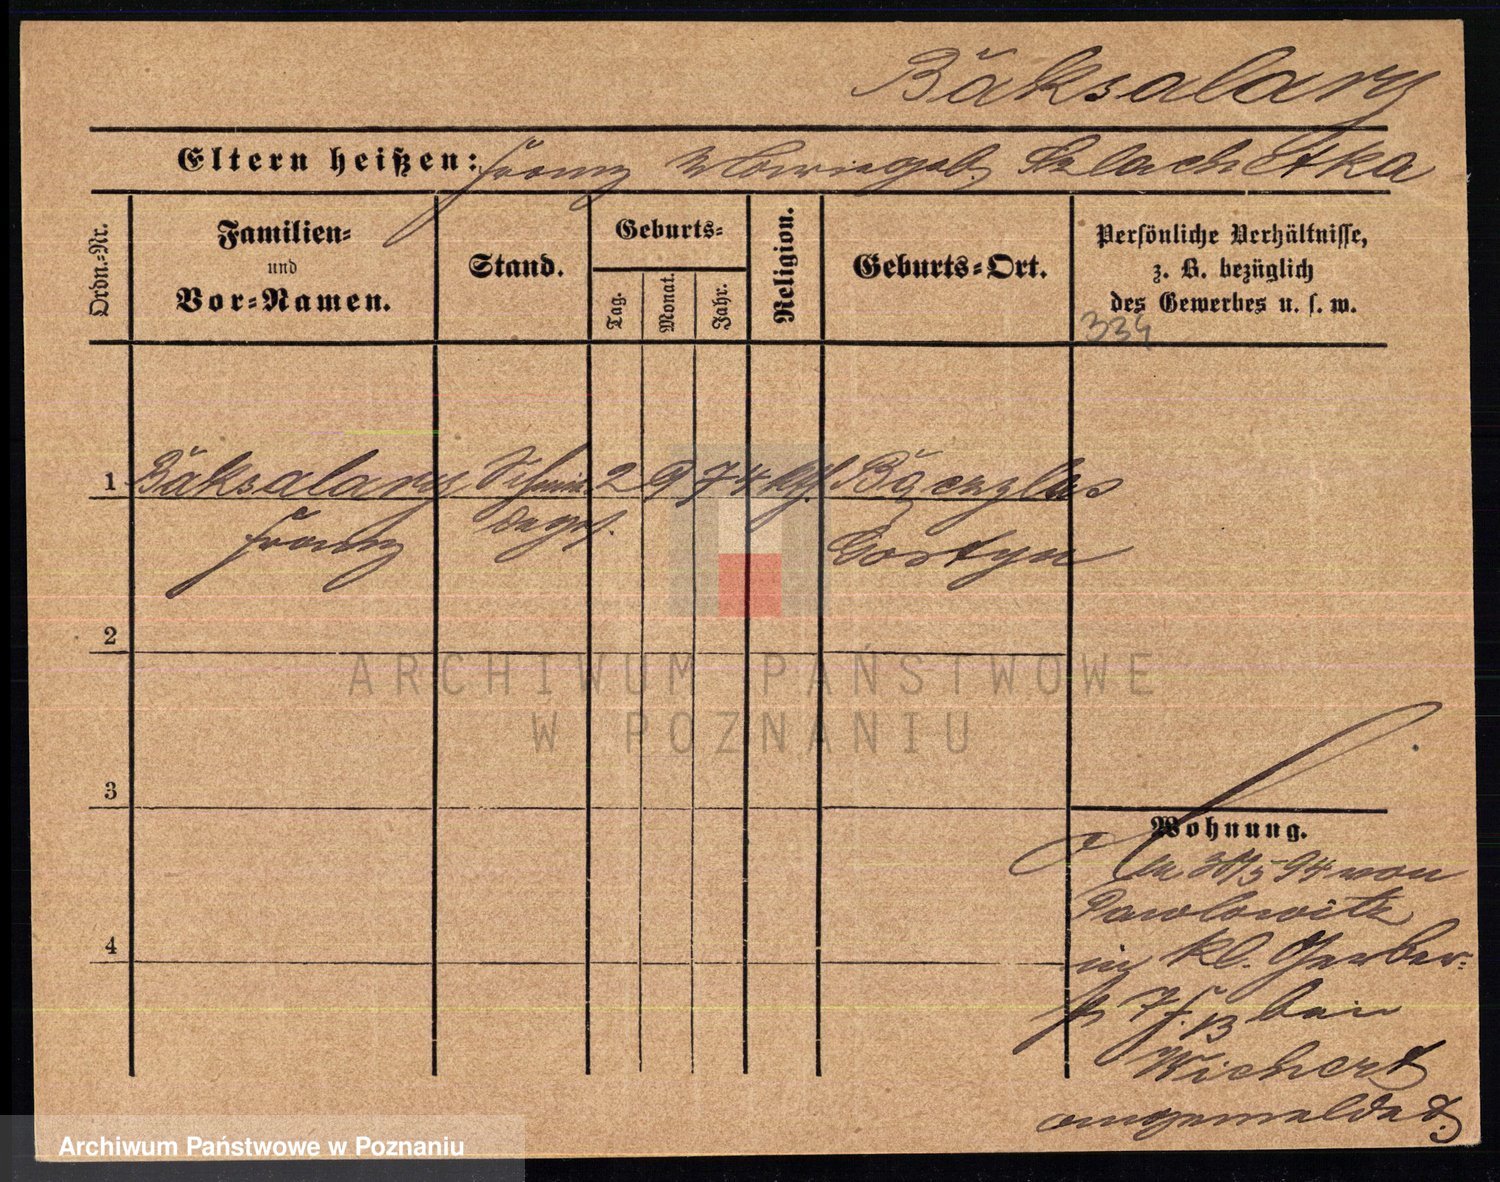 Bäksalary
Eltern heißen: Franz u Marie geb. Szlachetka
Ordn.-Nr.
Familien-
und
Vor-Namen.
Stand.
Geburts-
Tag.
Monat.
Jahr.
Religion.
Geburts-Ort.
Persönliche Verhältnisse,
z. B. bezüglich
des Gewerbes u. s. w.
334
1 Bäksalary Schmie- 2 9 74 kth
Franz degs.
Gostyn
2
3
4
Wohnung.
94 von
Pawlowitz
in kl. Gerber-
7 bei
Wichert
angemeldet.
ARCHIWUM PAŃSTWOWE
W POZNANIU
Archiwum Państwowe w Poznaniu